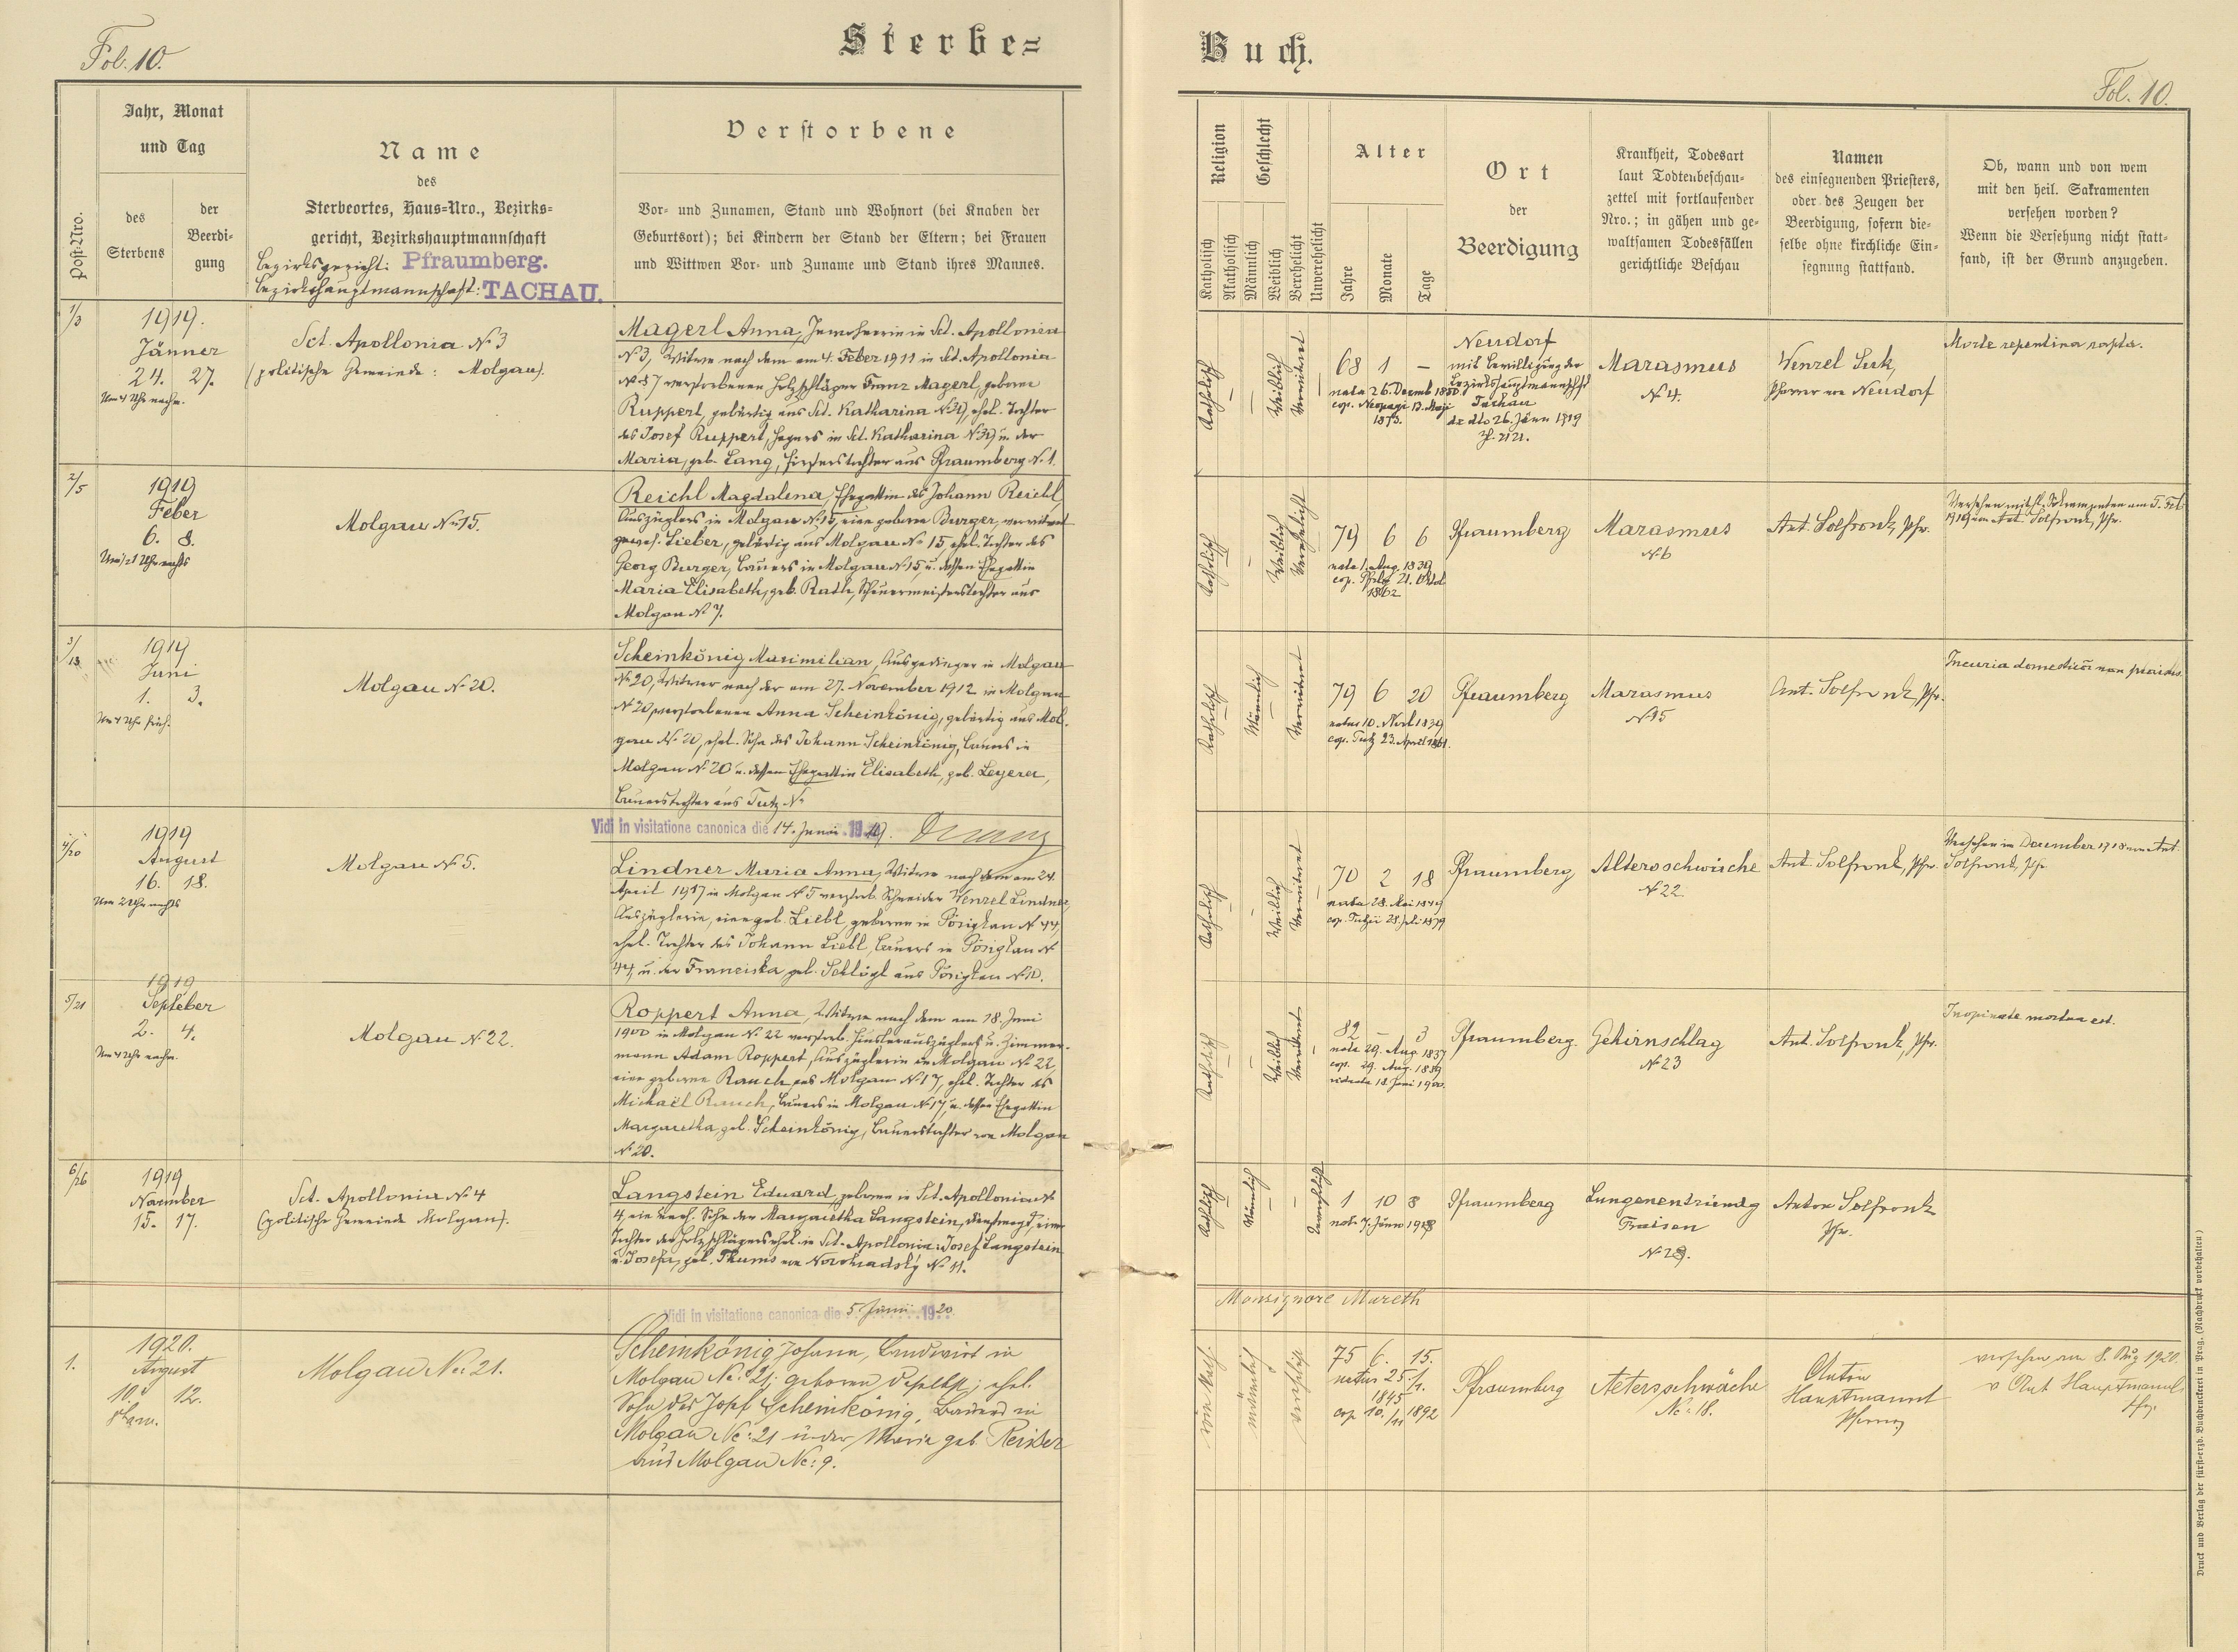 Fol. 10.
Sterbe=
Buch.
Fol. 10.
Post=Nro.
Jahr, Monat
und Tag
des
Sterbens
der
Beerdi=
gung
Name
des
Sterbeortes, Haus=Nro., Bezirks=
gericht, Bezirkshauptmannschaft
Bezirksgericht: Pfraumberg.
Bezirkshauptmannschaft: TACHAU.
Verstorbene
Vor= und Zunamen, Stand und Wohnort (bei Knaben der
Geburtsort); bei Kindern der Stand der Eltern; bei Frauen
und Wittwen Vor= und Zuname und Stand ihres Mannes.
Religion
Katholisch
Akatholisch
Geschlecht
Männlich
Weiblich
Verehelicht
Unverehelicht
Alter
Jahre
Monate
Tage
Ort
der
Beerdigung
Krankheit, Todesart
laut Todtenbeschau=
zettel mit fortlaufender
Nro.; in gähen und ge=
waltsamen Todesfällen
gerichtliche Beschau
Namen
des einsegnenden Priesters,
oder des Zeugen der
Beerdigung, sofern die=
selbe ohne kirchliche Ein=
segnung stattfand.
Ob, wann und von wem
mit den heil. Sakramenten
versehen worden?
Wenn die Versehung nicht statt=
fand, ist der Grund anzugeben.
1/3
1919.
Jänner
24. 27.
Um 4 Uhr nachm.
Sct. Apollonia № 3
(politische Gemeinde: Molgau).
Magerl Anna, Inwohnerin in Sct. Apollonia
№ 3, Witwe nach dem am 4. Feber 1911 in Sct. Apollonia
№ 37 verstorbenen Holzschläger Franz Magerl, geborne
Ruppert, gebürtig aus Sct. Katharina № 39, ehel. Tochter
des Josef Ruppert, Hegers in Sct. Katharina № 39 u. der
Maria, geb. Lang, Försterstochter aus Pfraumberg № 1.
Katholisch
Weiblich
Verwitwet
68 1 –
nata 26. Dezemb 1850
cop. Neopagi 13. Maji
1873.
Neudorf
mit Bewilligung der
Bezirkshauptmannschft
Tachau
de dto 26. Jänn 1919
Z. 2121.
Marasmus
№ 4.
Wenzel Sirk,
Pfarrer von Neudorf
Morte repentina rapta.
2/5
1919
Feber
6. 8.
Um 1/21 Uhr nachts
Molgau № 15.
Reichl Magdalena, Ehegattin des Johann Reichl,
Auszüglers in Molgau № 15, eine geborne Burger, verwitwet
gewes. Lieber, gebürtig aus Molgau № 15, ehel. Tochter des
Georg Burger, Bauers in Molgau № 15, u. dessen Ehegattin
Maria Elisabeth, geb. Rath, Schürmeisterstochter aus
Molgau № 7.
Katholisch
Weiblich
Verehelicht
79 6 6
nata 1. Aug. 1839
cop. Pfrbg 21. Oktob
1862
Pfraumberg
Marasmus
№ 6
Ant. Solfronk, Pfr.
Versehen mit hl. Sakramenten am 5. Feb
1919 von Ant. Solfronk, Pfr.
3/13
1919
Juni
1. 3.
Um 4 Uhr früh.
Molgau № 20.
Scheinkönig Maximilian, Ausgedinger in Molgau
№ 20, Witwer nach der am 27. November 1912 in Molgau
№ 20 verstorbenen Anna Scheinkönig, gebürtig aus Mol-
gau № 20, ehel. Sohn des Johann Scheinkönig, Bauers in
Molgau № 20 u. dessen Ehegattin Elisabeth, geb. Leyerer,
Bauerstochter aus Tutz №
Katholisch
Männlich
Verwitwet
79 6 20
natus 10. Novb 1839
cop. Tutz 23. April 1861.
Pfraumberg
Marasmus
№ 15
Ant. Solfronk, Pfr.
Incuria domesticor. non provisus.
Vidi in visitatione canonica die 14. Juni 1919.
4/20
1919
August
16. 18.
Um 2 Uhr nachts
Molgau № 5.
Lindner Maria Anna, Witwe nach dem am 24.
April 1917 in Molgau № 5 verstorb. Schneider Wenzel Lindner,
Auszüglerin, eine geb. Liebl, geboren in Pösigkau № 44,
ehel. Tochter des Johann Liebl, Bauers in Pösigkau №
44, u. der Franciska, geb. Schlögl aus Pösigkau № 10.
Katholisch
Weiblich
Verwitwet
70 2 18
nata 28. Mai 1849
cop. Tutzii 28. Juli 1879
Pfraumberg
Altersschwäche
№ 22
Ant. Solfronk, Pfr.
Versehen im Dezember 1918 von Ant.
Solfronk, Pfr.
5/21
1919
Septeber
2. 4.
Um 4 Uhr nachm.
Molgau № 22.
Roppert Anna, Witwe nach dem am 18. Juni
1900 in Molgau № 22 verstorb. Häuslerauszüglers u. Zimmer-
mann Adam Roppert, Auszüglerin in Molgau № 22,
eine geborne Rauch aus Molgau № 17, ehel. Tochter des
Michael Rauch, Bauers in Molgau № 17, u. dessen Ehegattin
Margaretha, geb. Scheinkönig, Bauerstochter von Molgau
№ 20.
Katholisch
Weiblich
Verwitwet
82 – 3
nata 29. Aug. 1837
cop. 29. Aug. 1889
viduata 18. Juni 1900.
Pfraumberg.
Gehirnschlag
№ 23
Ant. Solfronk, Pfr.
Inopinate mortua est.
6/26
1919
November
15. 17.
Sct. Apollonia № 4
(politische Gemeinde Molgau).
Langstein Eduard, geboren in Sct. Apollonia №
4, ein unch. Sohn der Margaretha Langstein, Dienstmagd, einer
Tochter des Holzschlägers ehel. in Sct. Apollonia: Josef Langstein
u. Josefa, geb. Thums von Novohradsky № 11.
Katholisch
Männlich
Unverehelicht
1 10 8
nat. 7. Jänn 1918
Pfraumberg
Lungenentzündg
Fraisen
№ 29.
Anton Solfronk
Pfr.
Vidi in visitatione canonica die 5 Juni 1920
Monsignore Mareth
1.
1920.
August
10. 12.
Molgau No: 21.
Scheinkönig Johann, Landwirt in
Molgau No: 21; geboren daselbst; ehel.
Sohn des Josef Scheinkönig, Bauers in
Molgau No: 21 u. der Maria geb. Reiser
aus Molgau No: 9.
männlich
verehel.
75 6. 15.
natus 25./1.
1845
cop 10./11 1892
Pfraumberg
Altersschwäche
No: 18.
Anton
Hauptmann
Pfarrer
versehen am 8. Aug 1920.
v Ant Hauptmann
Pfr.
Druck und Verlag der fürst=erzb. Buchdruckerei in Prag. (Nachdruck vorbehalten.)